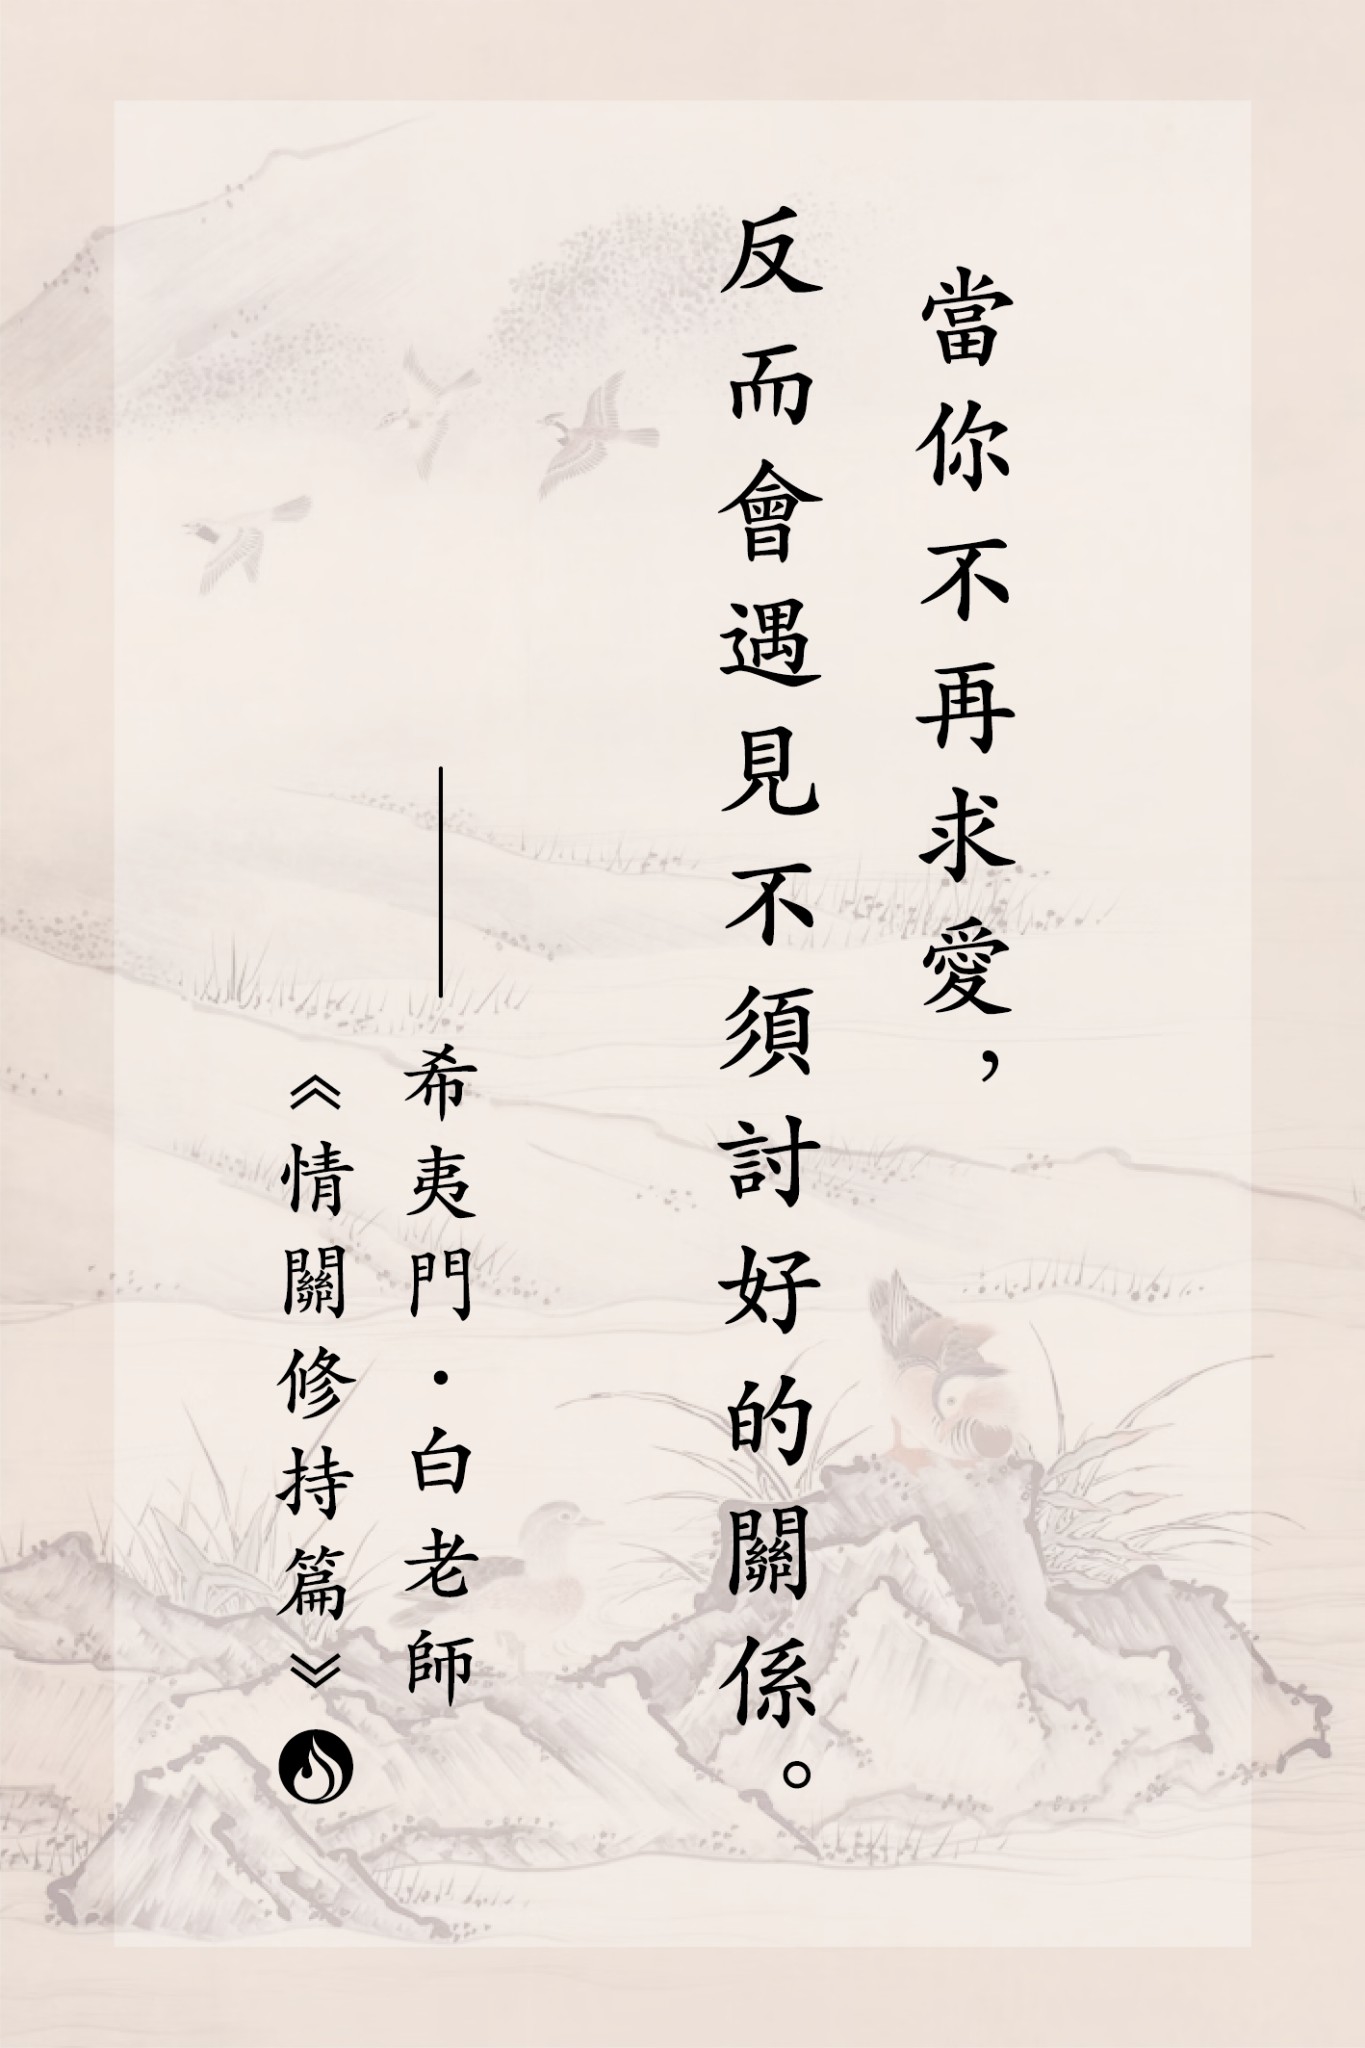 當你不再求愛，
反而會遇見不須討好的關係。
——希夷門·白老師
《情關修持篇》